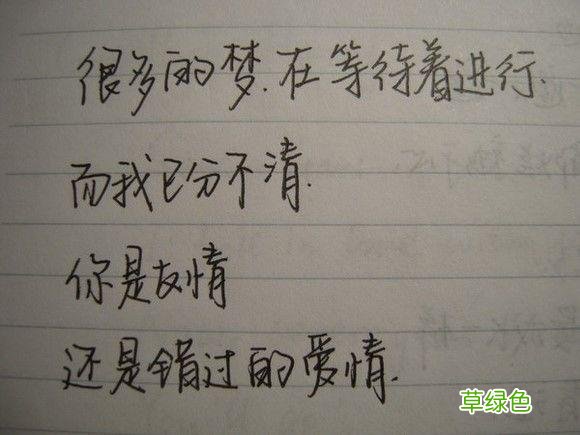 很多的梦.在等待着进行.
而我已分不清.
你是友情
还是错过的爱情.
草绿色